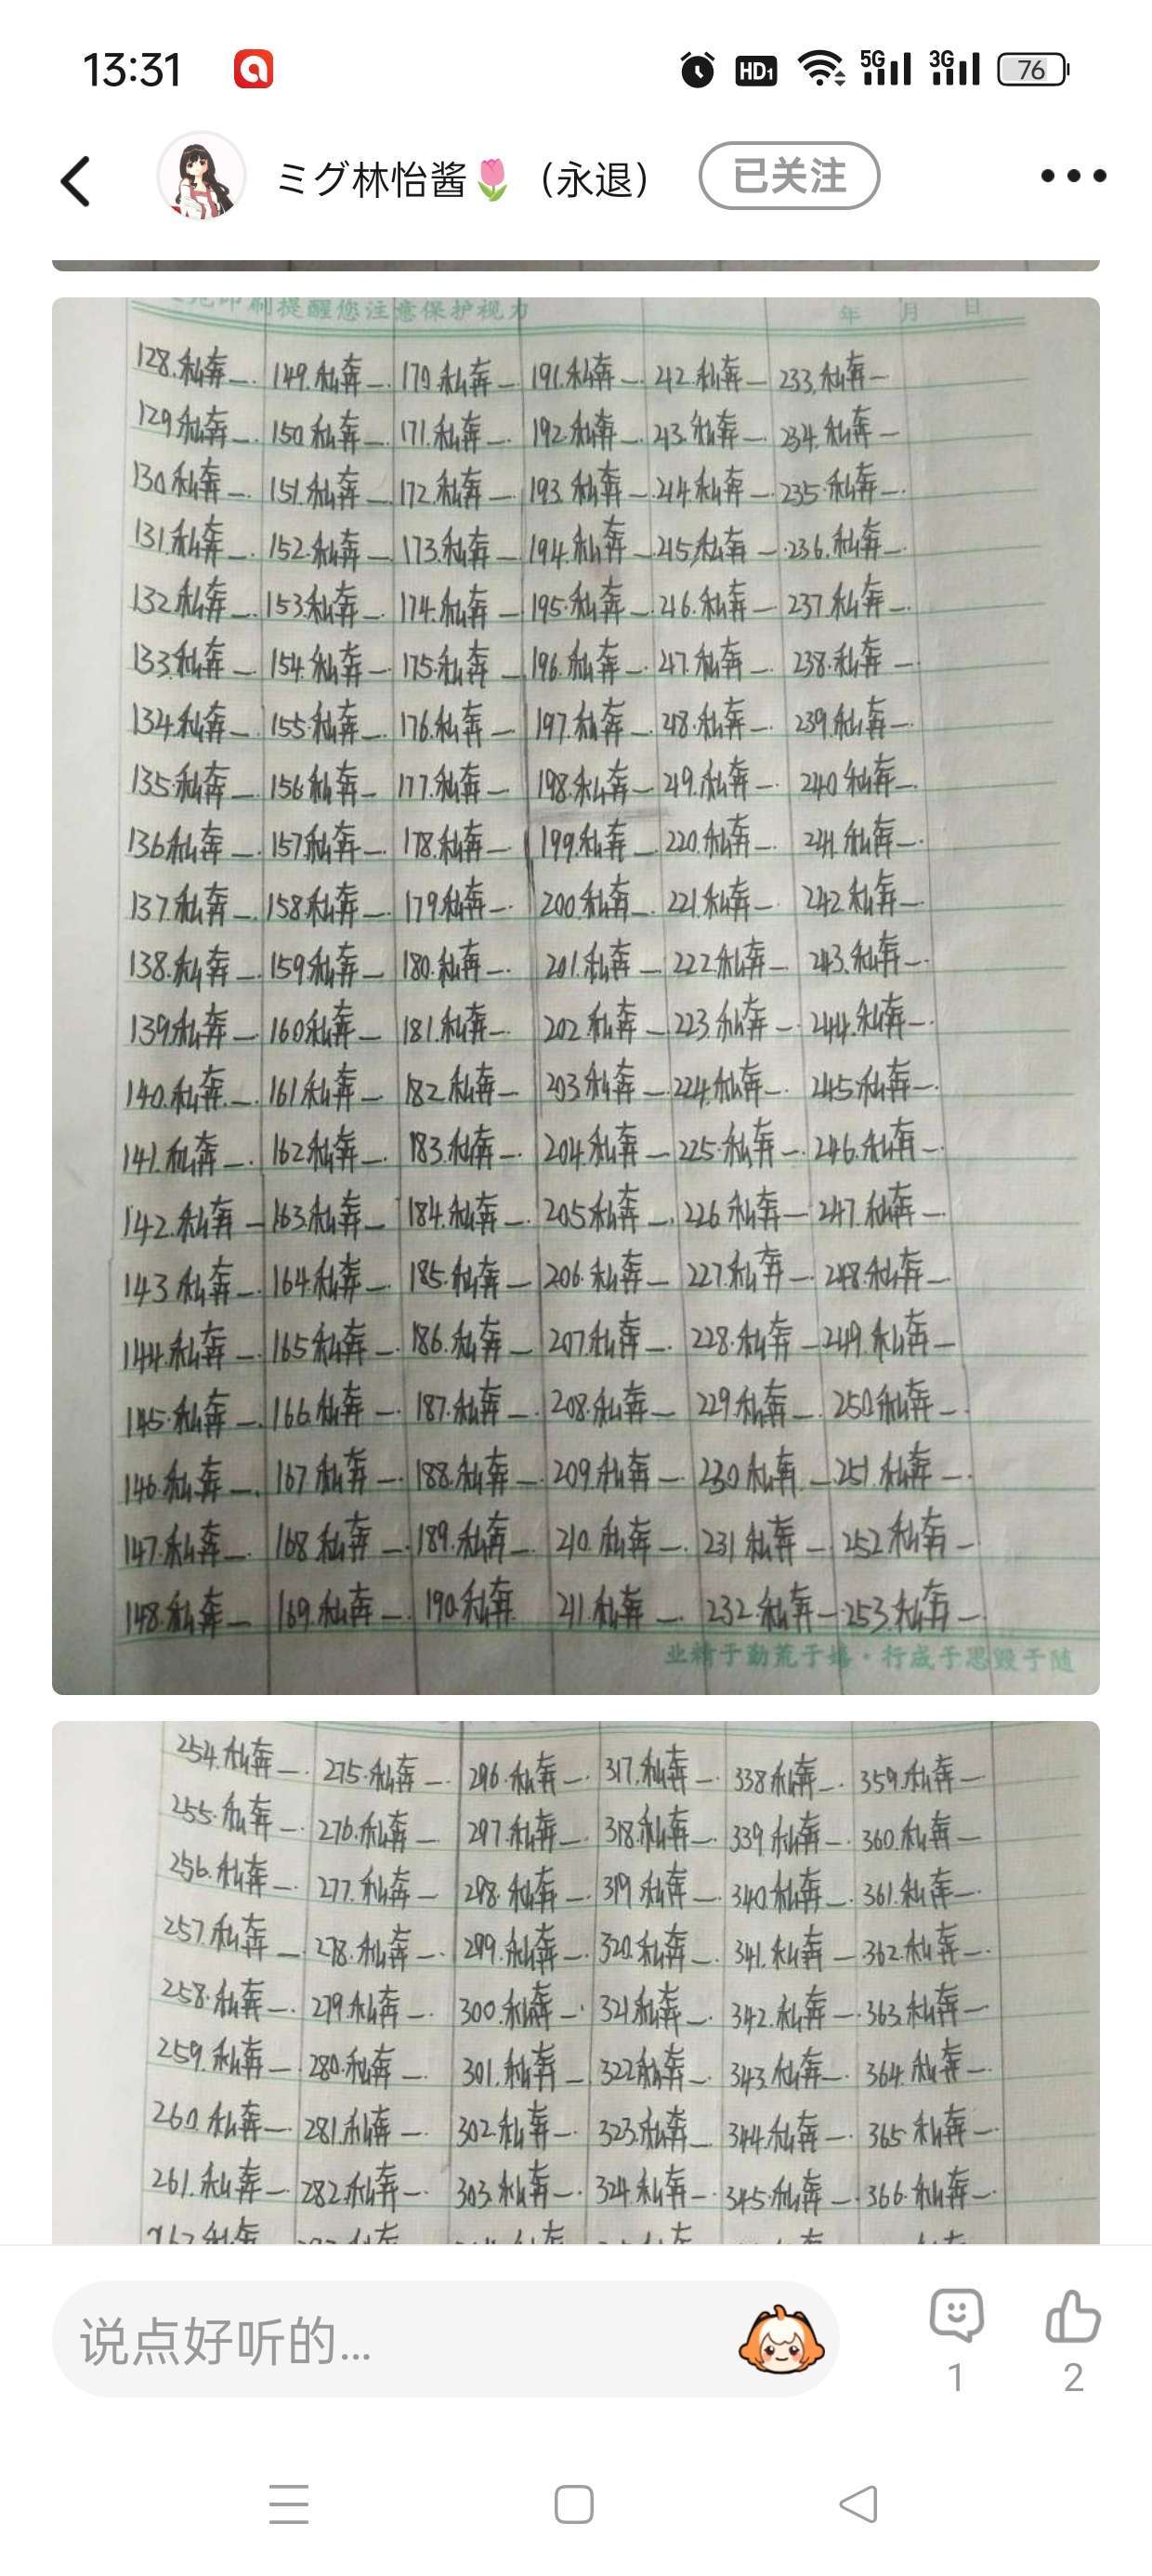 13:31
HD1 5G 3G 76
ミグ林怡酱🌷（永退） 已关注
印刷提醒您注意保护视力 年 月 日
128.私奔— 149.私奔— 170.私奔— 191.私奔— 212.私奔— 233.私奔—
129.私奔— 150.私奔— 171.私奔— 192.私奔— 213.私奔— 234.私奔—
130.私奔— 151.私奔— 172.私奔— 193.私奔— 214.私奔— 235.私奔—
131.私奔— 152.私奔— 173.私奔— 194.私奔— 215.私奔— 236.私奔—
132.私奔— 153.私奔— 174.私奔— 195.私奔— 216.私奔— 237.私奔—
133.私奔— 154.私奔— 175.私奔— 196.私奔— 217.私奔— 238.私奔—
134.私奔— 155.私奔— 176.私奔— 197.私奔— 218.私奔— 239.私奔—
135.私奔— 156.私奔— 177.私奔— 198.私奔— 219.私奔— 240.私奔—
136.私奔— 157.私奔— 178.私奔— 199.私奔— 220.私奔— 241.私奔—
137.私奔— 158.私奔— 179.私奔— 200.私奔— 221.私奔— 242.私奔—
138.私奔— 159.私奔— 180.私奔— 201.私奔— 222.私奔— 243.私奔—
139.私奔— 160.私奔— 181.私奔— 202.私奔— 223.私奔— 244.私奔—
140.私奔— 161.私奔— 182.私奔— 203.私奔— 224.私奔— 245.私奔—
141.私奔— 162.私奔— 183.私奔— 204.私奔— 225.私奔— 246.私奔—
142.私奔— 163.私奔— 184.私奔— 205.私奔— 226.私奔— 247.私奔—
143.私奔— 164.私奔— 185.私奔— 206.私奔— 227.私奔— 248.私奔—
144.私奔— 165.私奔— 186.私奔— 207.私奔— 228.私奔— 249.私奔—
145.私奔— 166.私奔— 187.私奔— 208.私奔— 229.私奔— 250.私奔—
146.私奔— 167.私奔— 188.私奔— 209.私奔— 230.私奔— 251.私奔—
147.私奔— 168.私奔— 189.私奔— 210.私奔— 231.私奔— 252.私奔—
148.私奔— 169.私奔— 190.私奔 211.私奔— 232.私奔— 253.私奔—
业精于勤荒于嬉·行成于思毁于随
254.私奔— 275.私奔— 296.私奔— 317.私奔— 338.私奔— 359.私奔—
255.私奔— 276.私奔— 297.私奔— 318.私奔— 339.私奔— 360.私奔—
256.私奔— 277.私奔— 298.私奔— 319.私奔— 340.私奔— 361.私奔—
257.私奔— 278.私奔— 299.私奔— 320.私奔— 341.私奔— 362.私奔—
258.私奔— 279.私奔— 300.私奔— 321.私奔— 342.私奔— 363.私奔—
259.私奔— 280.私奔— 301.私奔— 322.私奔— 343.私奔— 364.私奔—
260.私奔— 281.私奔— 302.私奔— 323.私奔— 344.私奔— 365.私奔—
261.私奔— 282.私奔— 303.私奔— 324.私奔— 345.私奔— 366.私奔—
说点好听的...
1 2